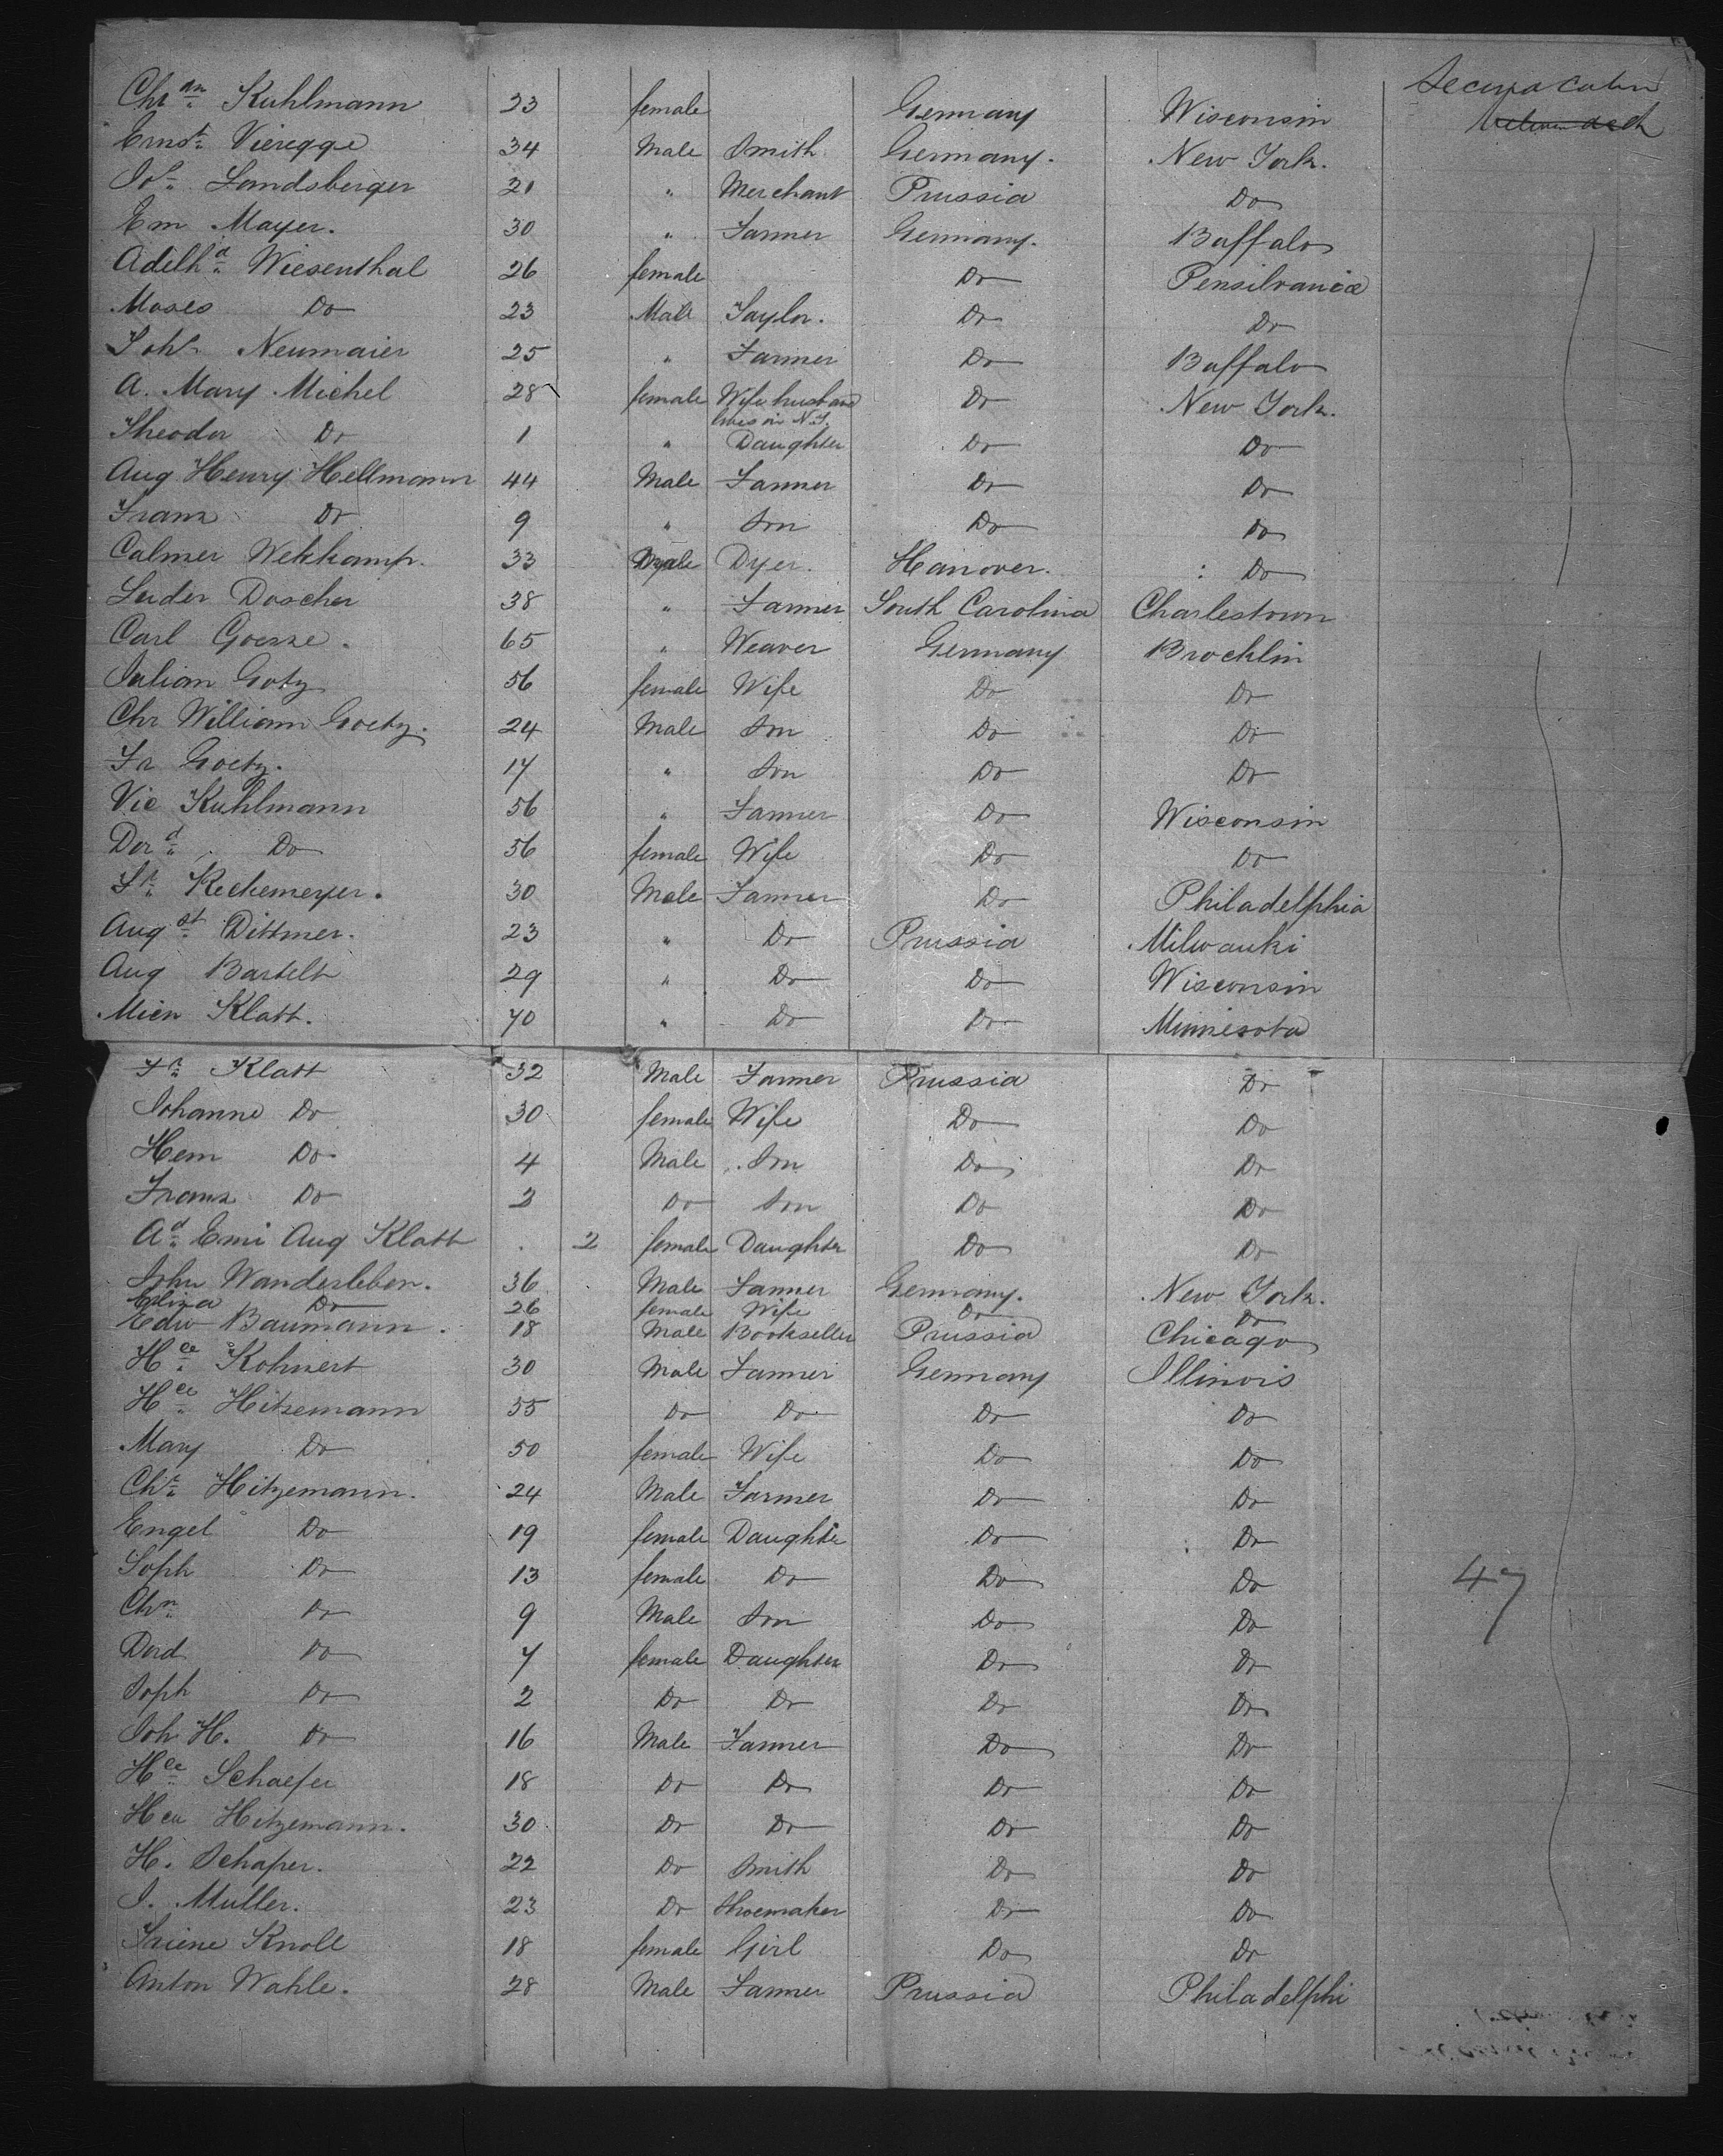 Chr an Kuhlmann 23 female Germany Wisconsin Second Cabin
Ernst Vieregge 34 Male Smith Germany. New York.
Jos Landsberger 21 " Merchant Prussia Do
Em Mayer. 30 " Farmer Germany. Buffalo
Adelhd Wiesenthal 26 female Do Pensilvania
Moses Do 23 Male Taylor. Do Do
Joh Neumaier 25 " Farmer Do Buffalo
A. Mary Michel 28 female Wife husband Do New York.
lives in N.Y.
Theodor Do 1 " Daughter Do Do
Aug Henry Hellmann 44 Male Farmer Do Do
Franz Do 9 " Son Do Do
Calmer Wekkamp. 33 Male Dyer. Hanover. Do
Luder Doscher 38 " Farmer South Carolina Charlestown
Carl Goesse. 65 " Weaver Germany Brocklin
Julian Gotz 56 female Wife Do Do
Chr William Goetz. 24 Male Son Do Do
Fr Goetz. 17 " Son Do Do
Vic Kuhlmann 56 " Farmer Do Wisconsin
Dord Do 56 female Wife Do Do
Fr Reckemeyer. 30 Male Farmer Do Philadelphia
Augst Dittmer. 23 " Do Prussia Milwauki
Aug Bartelt 29 " Do Do Wisconsin
Mien Klatt. 70 " Do Do Minnesota
Fr Klatt 32 Male Farmer Prussia Do
Johanne Do 30 female Wife Do Do
Hem Do 4 Male Son Do Do
Franz Do 2 Do Son Do Do
Ad Emi Aug Klatt . 2 female Daughter Do Do
John Wandersleben. 36 Male Farmer Germany. New York.
Eliza Do 26 female Wife Do Do
Edw Baumann. 18 Male Bookseller Prussia Chicago
Hce Kohnert 30 Male Farmer Germany Illinois
Hce Hitzemann 55 Do Do Do Do
Mary Do 50 female Wife Do Do
Chr Hitzemann. 24 Male Farmer Do Do
Engel Do 19 female Daughter Do Do
Soph Do 13 female Do Do Do 47
Chn Do 9 Male Son Do Do
Dord Do 7 female Daughter Do Do
Soph Do 2 Do Do Do Do
Joh H. Do 16 Male Farmer Do Do
Hce Schaefer 18 Do Do Do Do
Hce Hitzemann. 30 Do Do Do Do
H. Schaper. 22 Do Smith Do Do
J. Muller. 23 Do Shoemaker Do Do
Knoll 18 female Girl Do Do
Anton Wahle. 28 Male Farmer Prussia Philadelphi